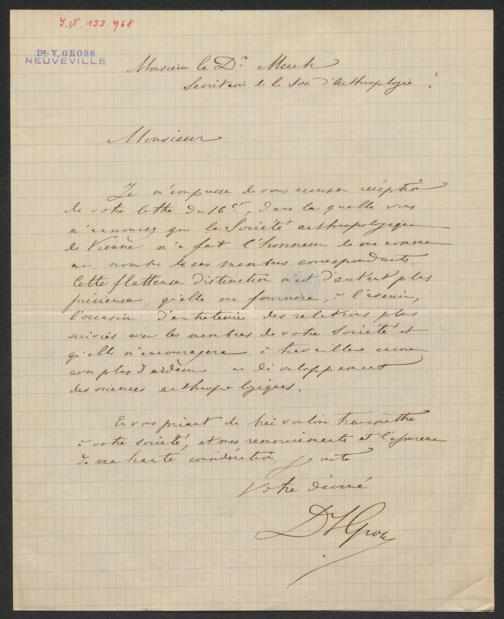 I.N. 133.968
Dr V. GROSS
NEUVEVILLE
Monsieur le Dr Much
Secrétaire de la Soc. d'Anthropologie !
Monsieur
Je m'empresse de vous accuser réception
de votre lettre du 16 ct, dans la quelle vous
m'annoncez que la Société anthropologique
de Vienne m'a fait l'honneur de me nommer
au nombre de ses membres correspondants.
Cette flatteuse distinction m'est d'autant plus
précieuse, qu'elle me fournira, à l'avenir,
l'occasion d'entretenir des relations plus
suivies avec les membres de votre Société et
qu'elle m'encouragera à travailler encore
avec plus d'ardeur au développement
des sciences anthropologiques.
En vous priant de bien vouloir transmettre
à votre société, et mes remerciements et l'assurance
de ma haute considération, je reste
Votre dévoué
Dr V Gross